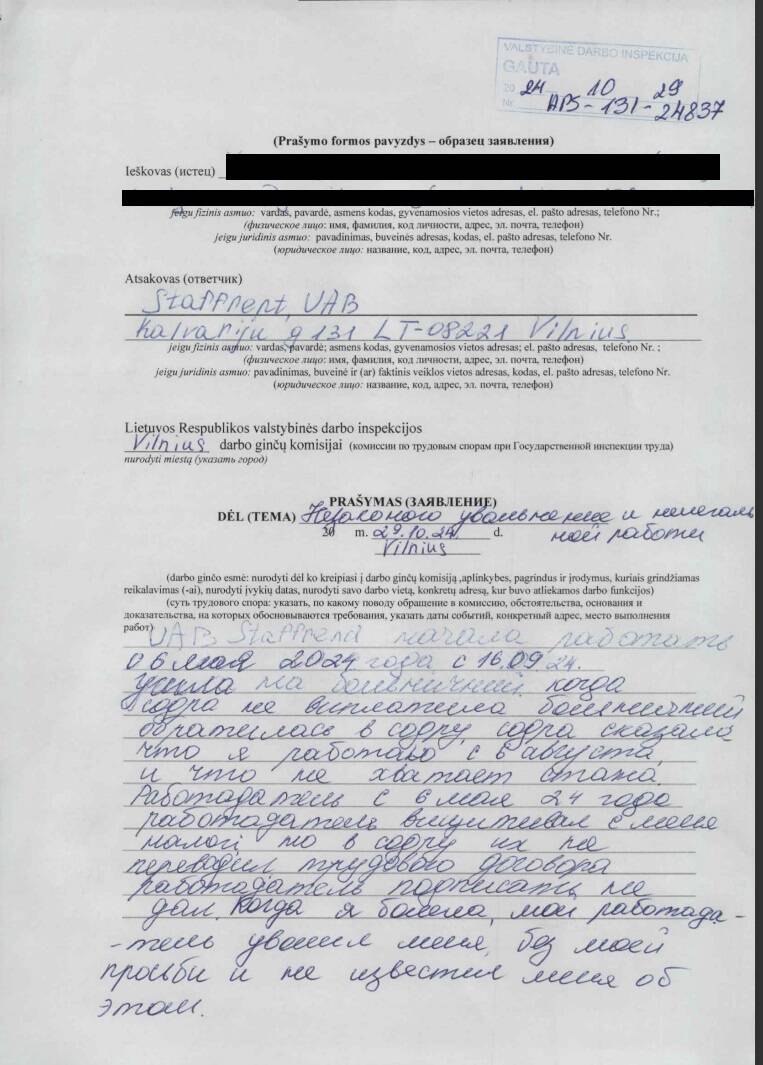 VALSTYBINĖ DARBO INSPEKCIJA
GAUTA
2024 10 29
Nr. APS-131-24837
(Prašymo formos pavyzdys – образец заявления)
Ieškovas (истец)
jeigu fizinis asmuo: vardas, pavardė, asmens kodas, gyvenamosios vietos adresas, el. pašto adresas, telefono Nr.;
(физическое лицо: имя, фамилия, код личности, адрес, эл. почта, телефон)
jeigu juridinis asmuo: pavadinimas, buveinės adresas, kodas, el. pašto adresas, telefono Nr.
(юридическое лицо: название, код, адрес, эл. почта, телефон)
Atsakovas (ответчик)
Staffrent, UAB
Kalvarijų g 131 LT-08221 Vilnius
jeigu fizinis asmuo: vardas, pavardė; asmens kodas, gyvenamosios vietos adresas; el. pašto adresas, telefono Nr. ;
(физическое лицо: имя, фамилия, код личности, адрес, эл. почта, телефон)
jeigu juridinis asmuo: pavadinimas, buveinė ir (ar) faktinis veiklos vietos adresas, kodas, el. pašto adresas, telefono Nr.
(юридическое лицо: название, код, адрес, эл. почта, телефон)
Lietuvos Respublikos valstybinės darbo inspekcijos
Vilnius darbo ginčų komisijai (комиссии по трудовым спорам при Государственной инспекции труда)
nurodyti miestą (указать город)
PRAŠYMAS (ЗАЯВЛЕНИЕ)
DĖL (TEMA) Незаконого увольнение и нелегаль
20 m. 29.10.24. d. ной работы
Vilnius
(darbo ginčo esmė: nurodyti dėl ko kreipiasi į darbo ginčų komisiją ,aplinkybes, pagrindus ir įrodymus, kuriais grindžiamas
reikalavimas (-ai), nurodyti įvykių datas, nurodyti savo darbo vietą, konkretų adresą, kur buvo atliekamos darbo funkcijos)
(суть трудового спора: указать, по какому поводу обращение в комиссию, обстоятельства, основания и
доказательства, на которых обосновываются требования, указать даты событий, конкретный адрес, место выполнения
работ)
UAB Staffrend начала работать
06 мая 2024 года с 16.09 24.
ушла на больничний. когда
содра не виплатила больничний
обратилась в содру, содра сказала
что я работаю с 6 августа,
и что не хватает стажа.
Работадатель с 6 мая 24 года
работадатель вищитивал с меня
налог но в содру их не
переводил трудового договора
работадатель подписать не
дал. Когда я болела, мой работада-
-тель уволил меня, без моей
просьби и не известил меня об
этом.